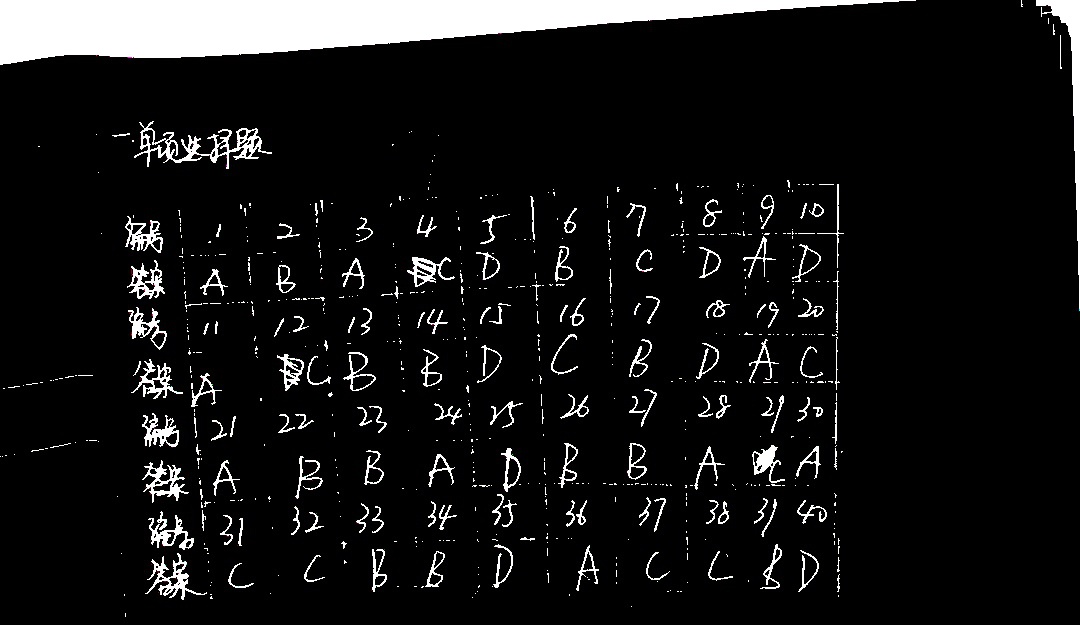 一.单项选择题
题号 1 2 3 4 5 6 7 8 9 10
答案 A B A C D B C D A D
题号 11 12 13 14 15 16 17 18 19 20
答案 A C B B D C B D A C
题号 21 22 23 24 25 26 27 28 29 30
答案 A B B A D B B A C A
题号 31 32 33 34 35 36 37 38 39 40
答案 C C B B D A C C B D